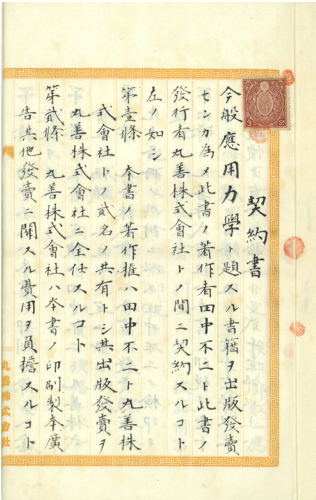 契約書
今般應用力學ト題スル書籍ヲ出版發賣
センカ為メ此書ノ著作者田中不二ト此書ノ
發行者丸善株式會社トノ間ニ契約スルコト
左ノ如シ
第壹條 本書ノ著作権ハ田中不二ト丸善株
式會社トノ貳名ノ共有トシ其出版發賣ヲ
丸善株式會社ニ全任スルコト
第貳條 丸善株式會社ハ本書ノ印刷製本廣
告其他發賣ニ関スル費用ヲ負擔スルコト
丸善株式會社